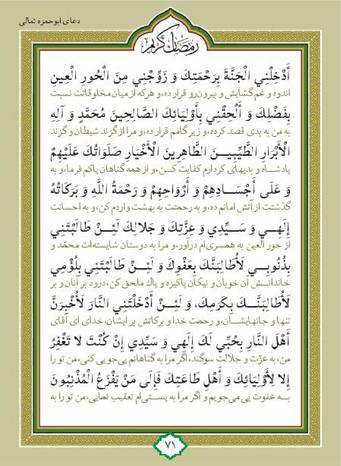 دعای ابوحمزه ثمالی
رمضان کریم
أَدْخِلْنِي الْجَنَّةَ بِرَحْمَتِكَ وَ زَوِّجْنِي مِنَ الْحُورِ الْعِينِ
اندوه و غم گشایش و بیرون‌رو قرار ده، و هر که از میان مخلوقاتت نسبت
بِفَضْلِكَ وَ أَلْحِقْنِي بِأَوْلِيَائِكَ الصَّالِحِينَ مُحَمَّدٍ وَ آلِهِ
به من به بدی قصد کرده، و زیر گامم قرار ده، و مرا از گزند شیطان و گزند
الْأَبْرَارِ الطَّيِّبِينَ الطَّاهِرِينَ الْأَخْيَارِ صَلَوَاتُكَ عَلَيْهِمْ
پادشاه و بدیهای کردارم کفایت کن، و از همه گناهان پاکم فرما، و به
وَ عَلَى أَجْسَادِهِمْ وَ أَرْوَاحِهِمْ وَ رَحْمَةُ اللَّهِ وَ بَرَكَاتُهُ
گذشتت از آتش امانم ده، و به رحمتت به بهشت واردم کن، و به احسانت
إِلَهِي وَ سَيِّدِي وَ عِزَّتِكَ وَ جَلَالِكَ لَئِنْ طَالَبْتَنِي
از حور العین به همسری‌ام درآور، و مرا به دوستان شایسته‌ات محمّد و
بِذُنُوبِي لَأُطَالِبَنَّكَ بِعَفْوِكَ وَ لَئِنْ طَالَبْتَنِي بِلُؤْمِي
خاندانش آن خوبان و نیکان پاکیزه و پاک ملحق کن، درود بر آنان و بر
لَأُطَالِبَنَّكَ بِكَرَمِكَ، وَ لَئِنْ أَدْخَلْتَنِي النَّارَ لَأُخْبِرَنَّ
تنها و جانهایشان، و رحمت خدا و برکاتش بر ایشان، خدای ای آقای
أَهْلَ النَّارِ بِحُبِّي لَكَ إِلَهِي وَ سَيِّدِي إِنْ كُنْتَ لا تَغْفِرُ
من، به عزّت و جلالت سوگند، اگر مرا به گناهانم پی‌جویی کنی، من تو را
إِلا لِأَوْلِيَائِكَ وَ أَهْلِ طَاعَتِكَ فَإِلَى مَنْ يَفْزَعُ الْمُذْنِبُونَ
به عفوت پی می‌جویم و اگر مرا به پستی‌ام تعقیب نمایی، من تو را به
۷۱